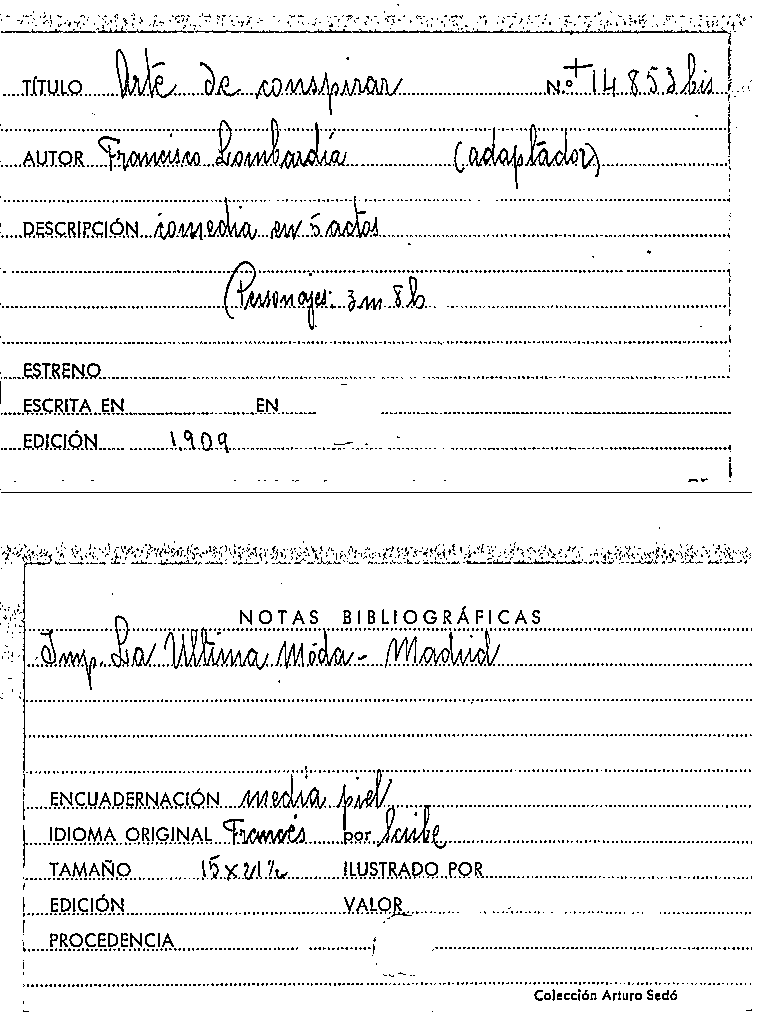 TÍTULO Arte de conspirar N.º +14.853 bis
AUTOR Francisco Lombardía (adaptador)
DESCRIPCIÓN comedia en 5 actos
(Personajes: 3m 8h
ESTRENO
ESCRITA EN EN
EDICIÓN 1909
NOTAS BIBLIOGRÁFICAS
Imp. La Ultima Moda - Madrid
ENCUADERNACIÓN media piel
IDIOMA ORIGINAL Francés por Scribe
TAMAÑO 15 x 21½ ILUSTRADO POR
EDICIÓN VALOR
PROCEDENCIA
Colección Arturo Sedó